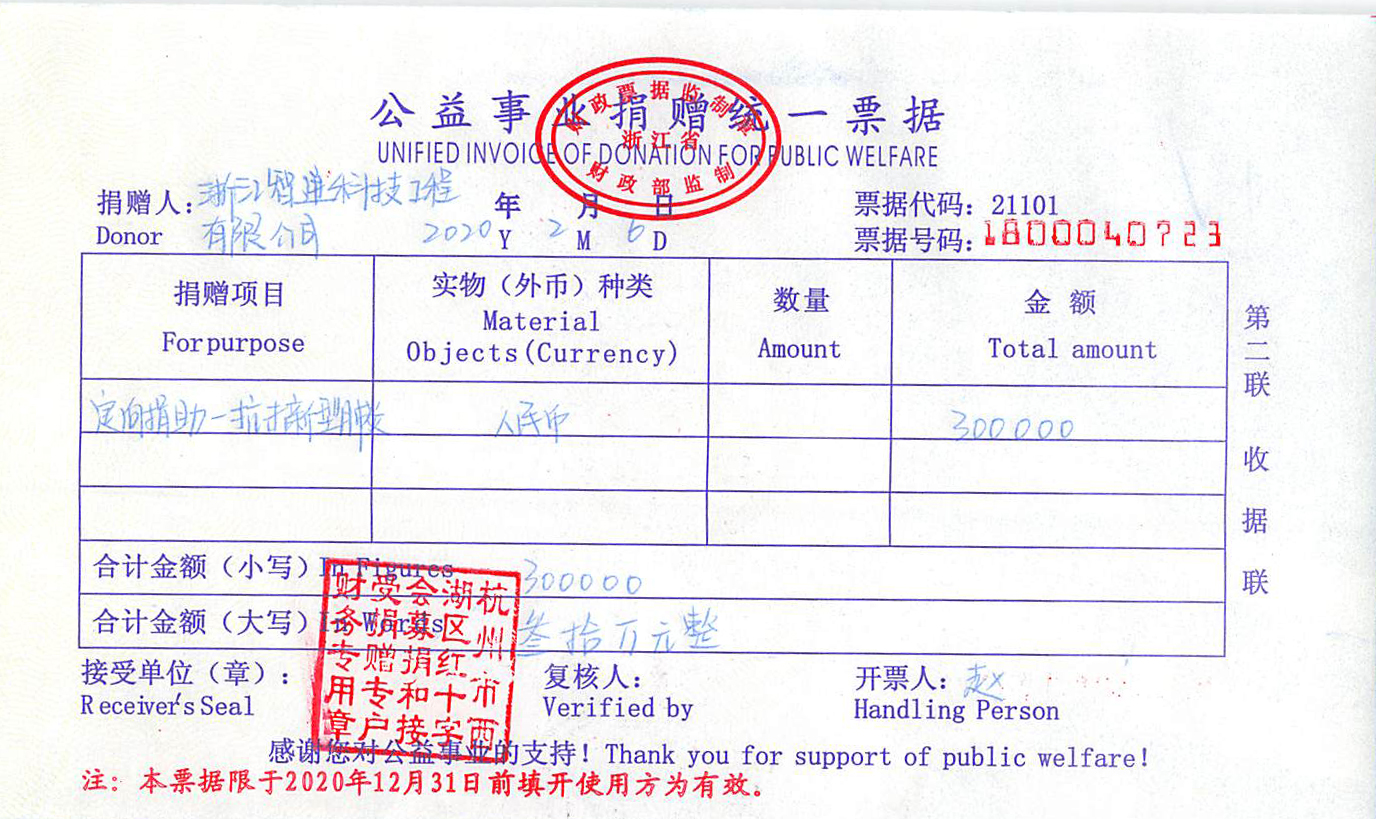 公益事业捐赠统一票据
UNIFIED INVOICE OF DONATION FOR PUBLIC WELFARE
财政票据监制章
浙江省
财政部监制
捐赠人：浙江智进科技工程
Donor 有限公司
年 月 日
2020 Y 2 M 6 D
票据代码：21101
票据号码：1800040723
捐赠项目
For purpose
实物（外币）种类
Material
Objects(Currency)
数量
Amount
金 额
Total amount
定向捐助一抗击新型肺炎 人民币 300000
合计金额（小写）In Figures 300000
合计金额（大写）In Words 叁拾万元整
接受单位（章）：
Receiver's Seal
杭州市西
湖区红十字
会募捐和接
受捐赠专户
财务专用章
复核人：
Verified by
开票人：赵
Handling Person
第二联 收据联
感谢您对公益事业的支持！Thank you for support of public welfare!
注：本票据限于2020年12月31日前填开使用方为有效。